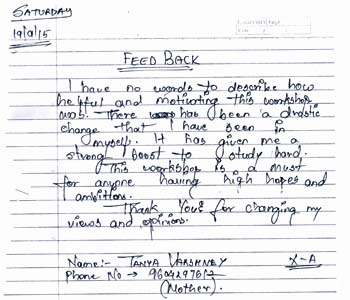 SATURDAY
19/9/15
FEED BACK
I have no words to describe how
helpful and motivating this workshop
was. There has been a drastic
change that I have seen in
myself. It has given me a
strong boost to study hard.
This workshop is a must
for anyone having high hopes and
ambitions.
Thank You! for changing my
views and opinions.
Name:- TANYA VARSHNEY X-A
Phone No →
(Mother).